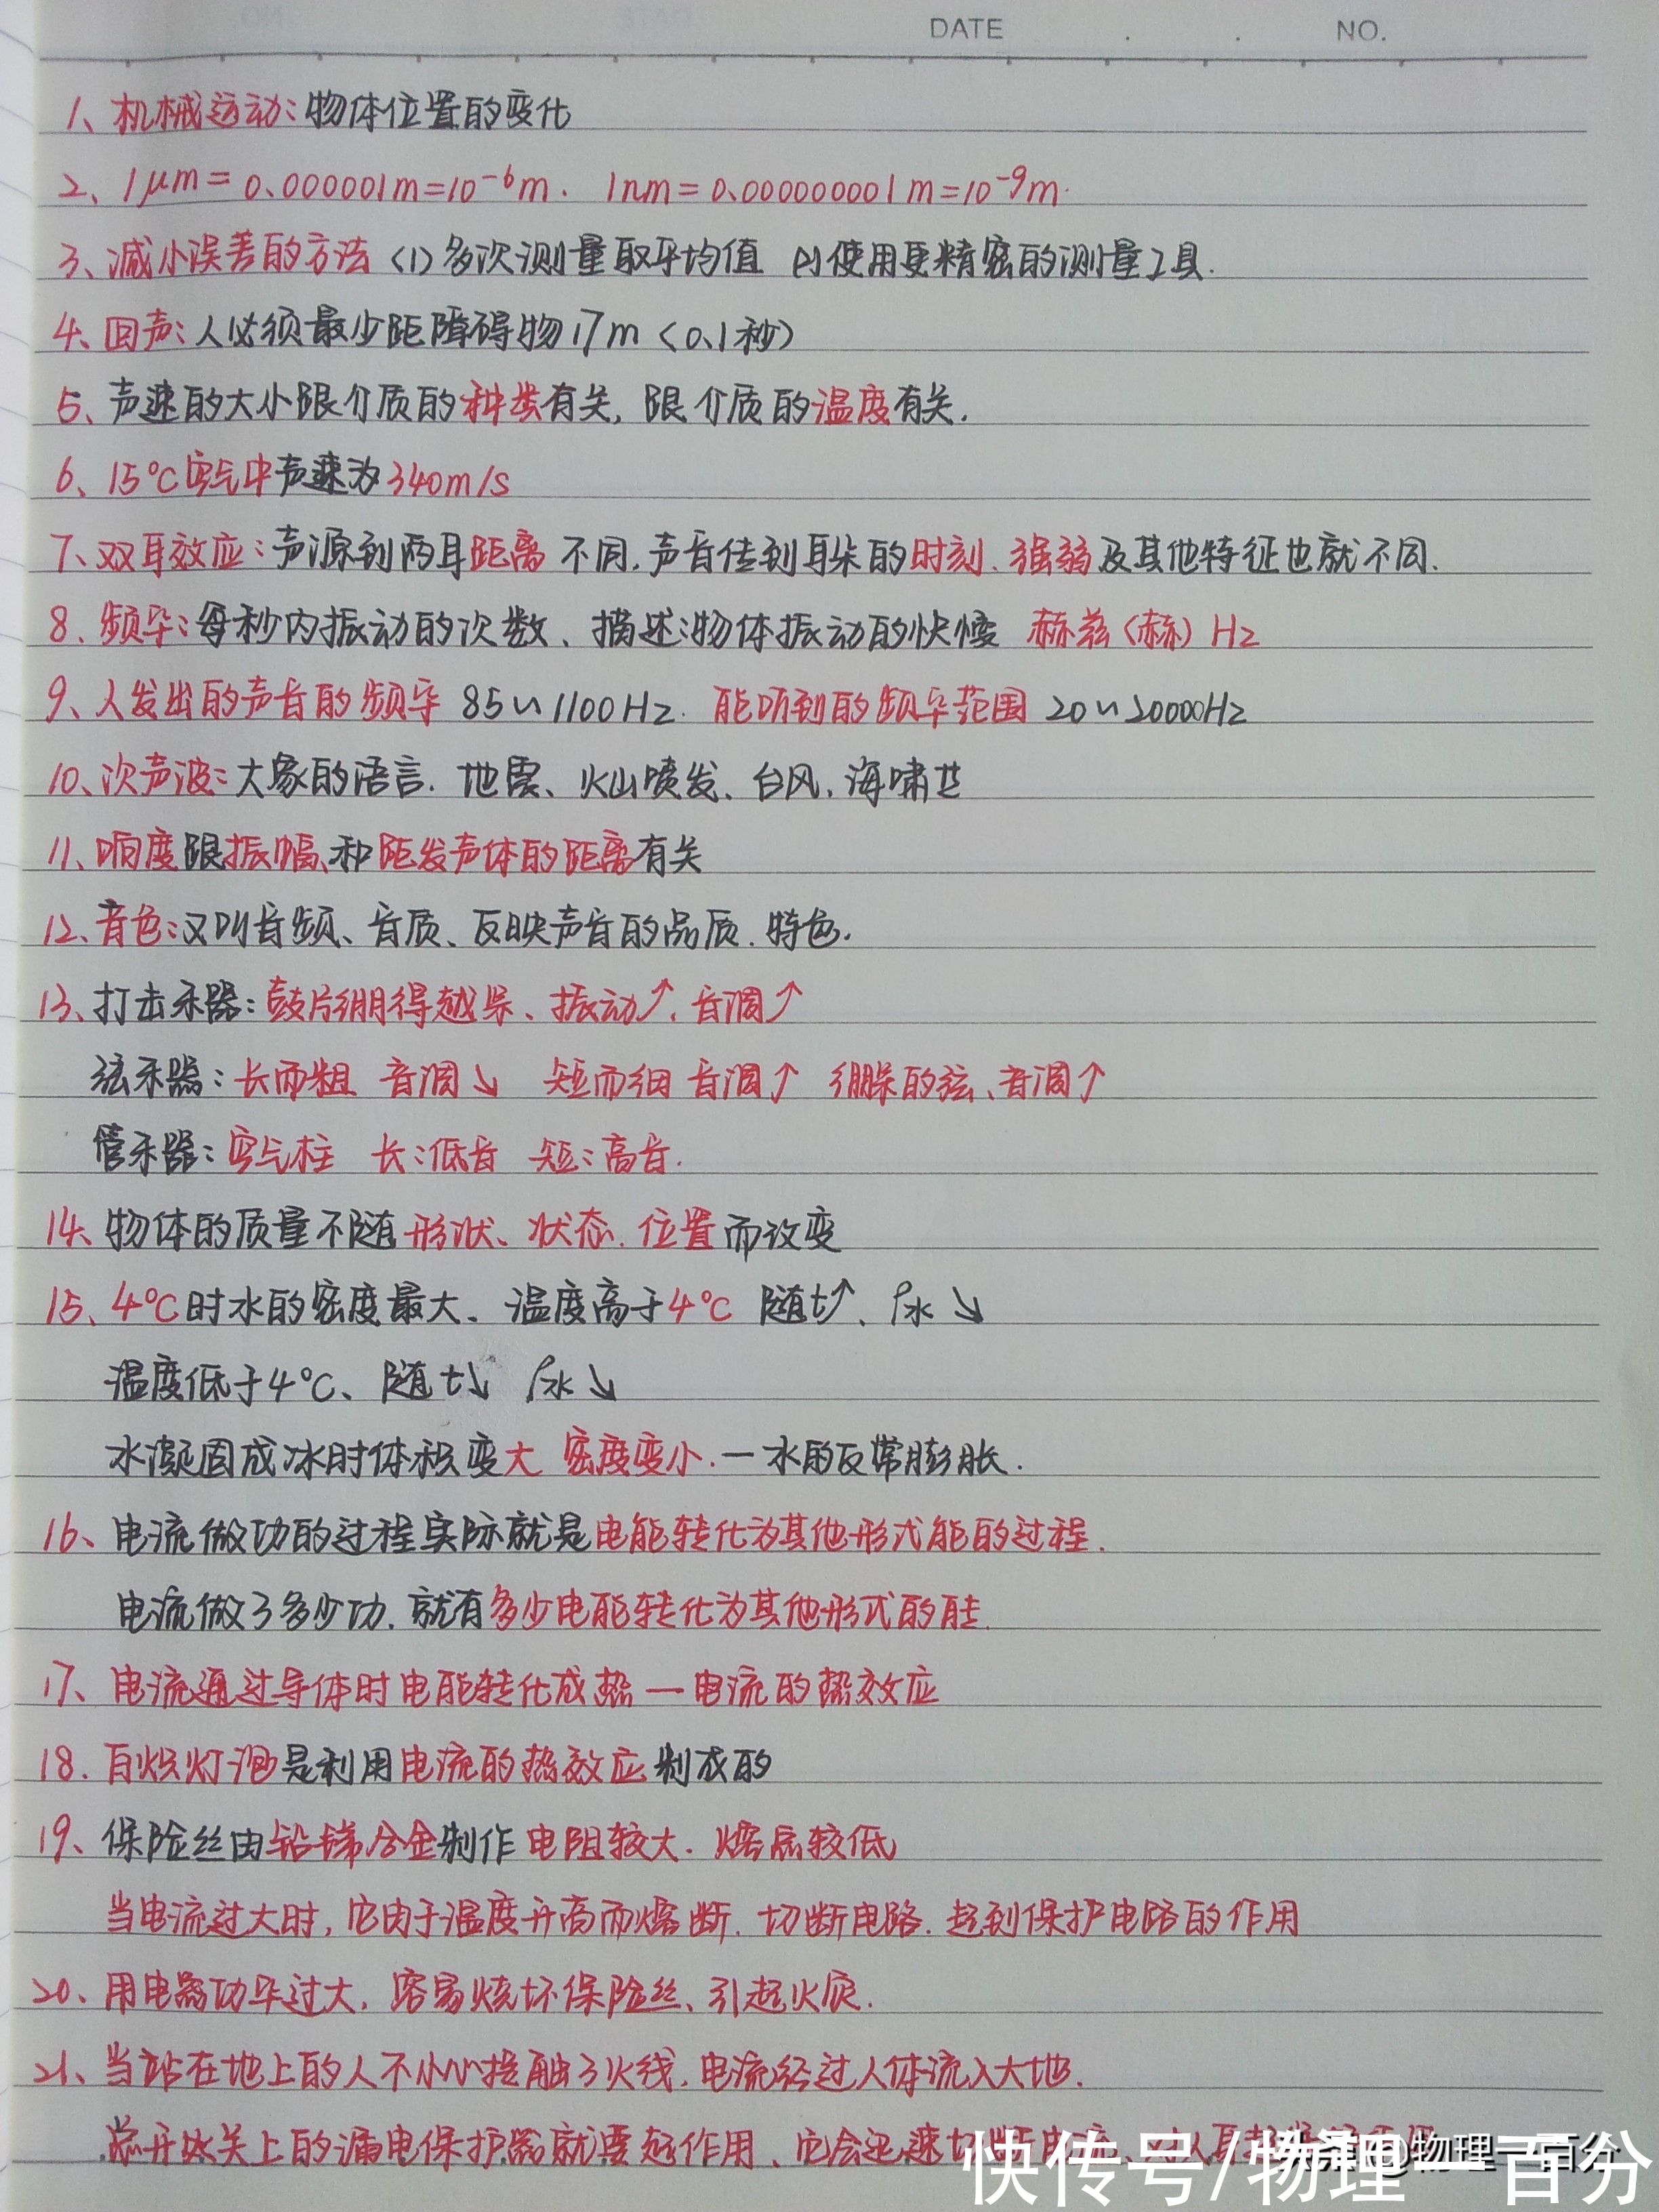 DATE . . NO.
1、机械运动：物体位置的变化
2、1μm=0.000001m=10⁻⁶m. 1nm=0.000000001m=10⁻⁹m.
3、减小误差的方法 (1)多次测量取平均值 (2)使用更精密的测量工具.
4、回声：人必须最少距障碍物17m(0.1秒)
5、声速的大小跟介质的种类有关, 跟介质的温度有关.
6、15℃空气中声速为340m/s
7、双耳效应：声源到两耳距离不同,声音传到耳朵的时刻、强弱及其他特征也就不同.
8、频率：每秒内振动的次数、描述物体振动的快慢 赫兹(赫) Hz
9、人发出的声音的频率 85~1100Hz. 能听到的频率范围 20~20000Hz
10、次声波：大象的语言. 地震、火山喷发、台风, 海啸廿
11、响度跟振幅、和距发声体的距离有关
12、音色：又叫音频、音质、反映声音的品质.特色.
13、打击乐器：鼓片绷得越紧、振动↑.音调↑
弦乐器：长而粗 音调↘ 短而细 音调↑ 绷紧的弦、音调↑
管乐器：空气柱 长：低音 短：高音.
14、物体的质量不随形状、状态.位置而改变
15、4℃时水的密度最大、温度高于4℃ 随t↑、ρ水↘
温度低于4℃、随t↘ ρ水↘
水凝固成冰时体积变大 密度变小.—水的反常膨胀.
16、电流做功的过程实际就是电能转化为其他形式能的过程.
电流做了多少功.就有多少电能转化为其他形式的能.
17、电流通过导体时电能转化成热—电流的热效应
18.白炽灯泡是利用电流的热效应制成的
19、保险丝由铅锑合金制作 电阻较大.熔点较低
当电流过大时,它由于温度升高而熔断.切断电路.起到保护电路的作用
20、用电器功率过大,容易烧坏保险丝、引起火灾.
21、当站在地上的人不小心接触了火线,电流经过人体流入大地.
总开关上的漏电保护器就要起作用、它会迅速切断电流、对人
头条@物理一百分
快传号/物理一百分